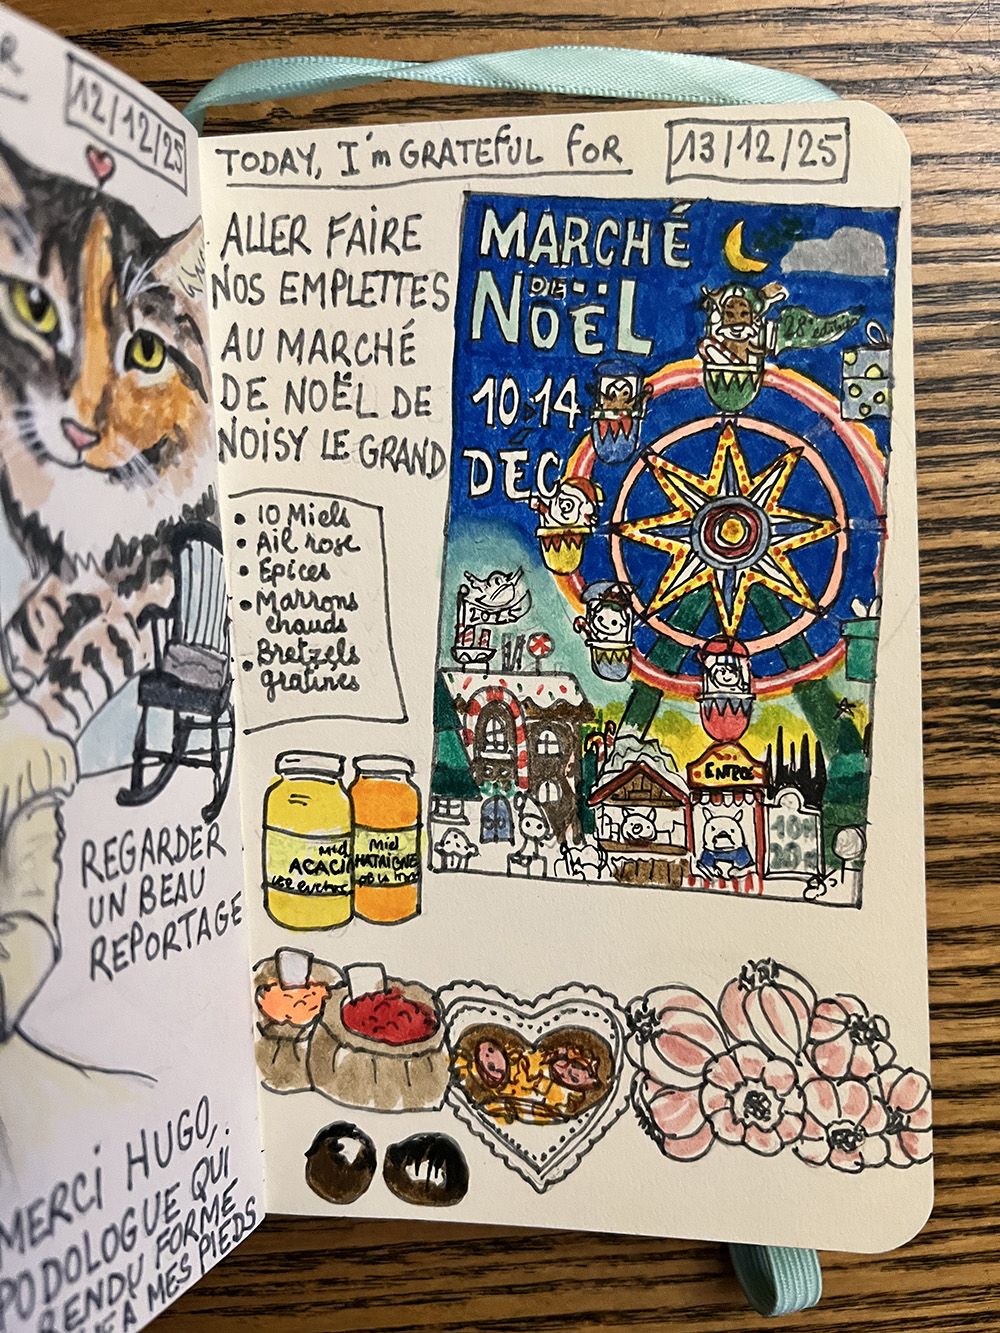 12/12/25
REGARDER
UN BEAU
REPORTAGE
MERCI HUGO,
PODOLOGUE QUI
RENDU FORME
À MES PIEDS
TODAY, I'm GRATEFUL FOR
13/12/25
ALLER FAIRE
NOS EMPLETTES
AU MARCHÉ
DE NOËL DE
NOISY LE GRAND
• 10 Miels
• Ail rose
• Epices
• Marrons
chauds
• Bretzels
gratinés
MARCHÉ
DE
NOËL
28e édition
10 14
DÉC
2025
ENTREE
Miel
ACACIA
Miel